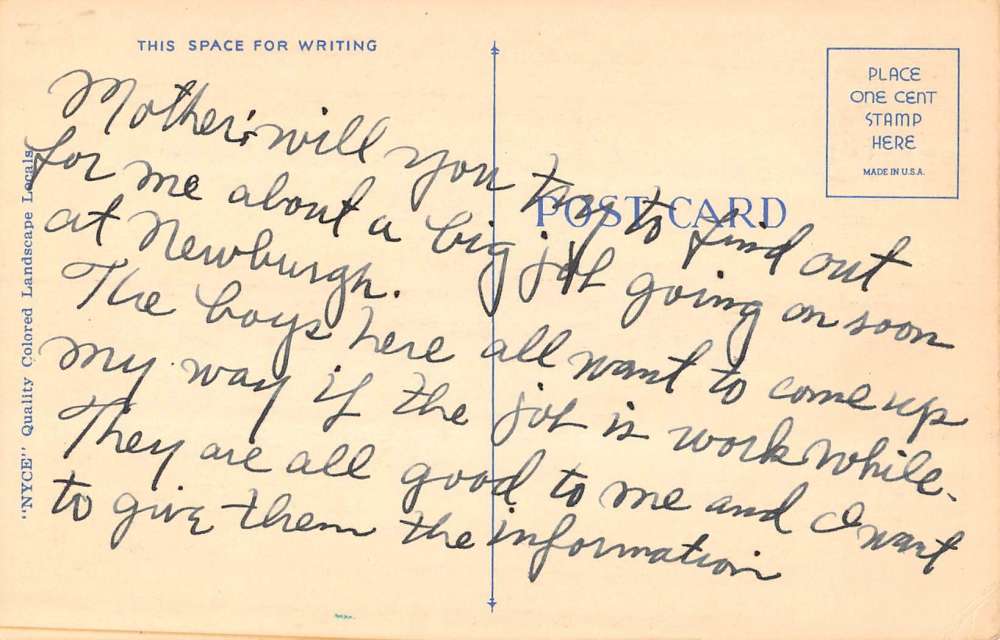 THIS SPACE FOR WRITING
PLACE
ONE CENT
STAMP
HERE
MADE IN U.S.A.
POST CARD
"NYCE" Quality Colored Landscape Locals
Mother: will you try to find out
for me about a big job going on soon
at Newburgh.
The boys here all want to come up
my way if the job is work while.
They are all good to me and I want
to give them the information